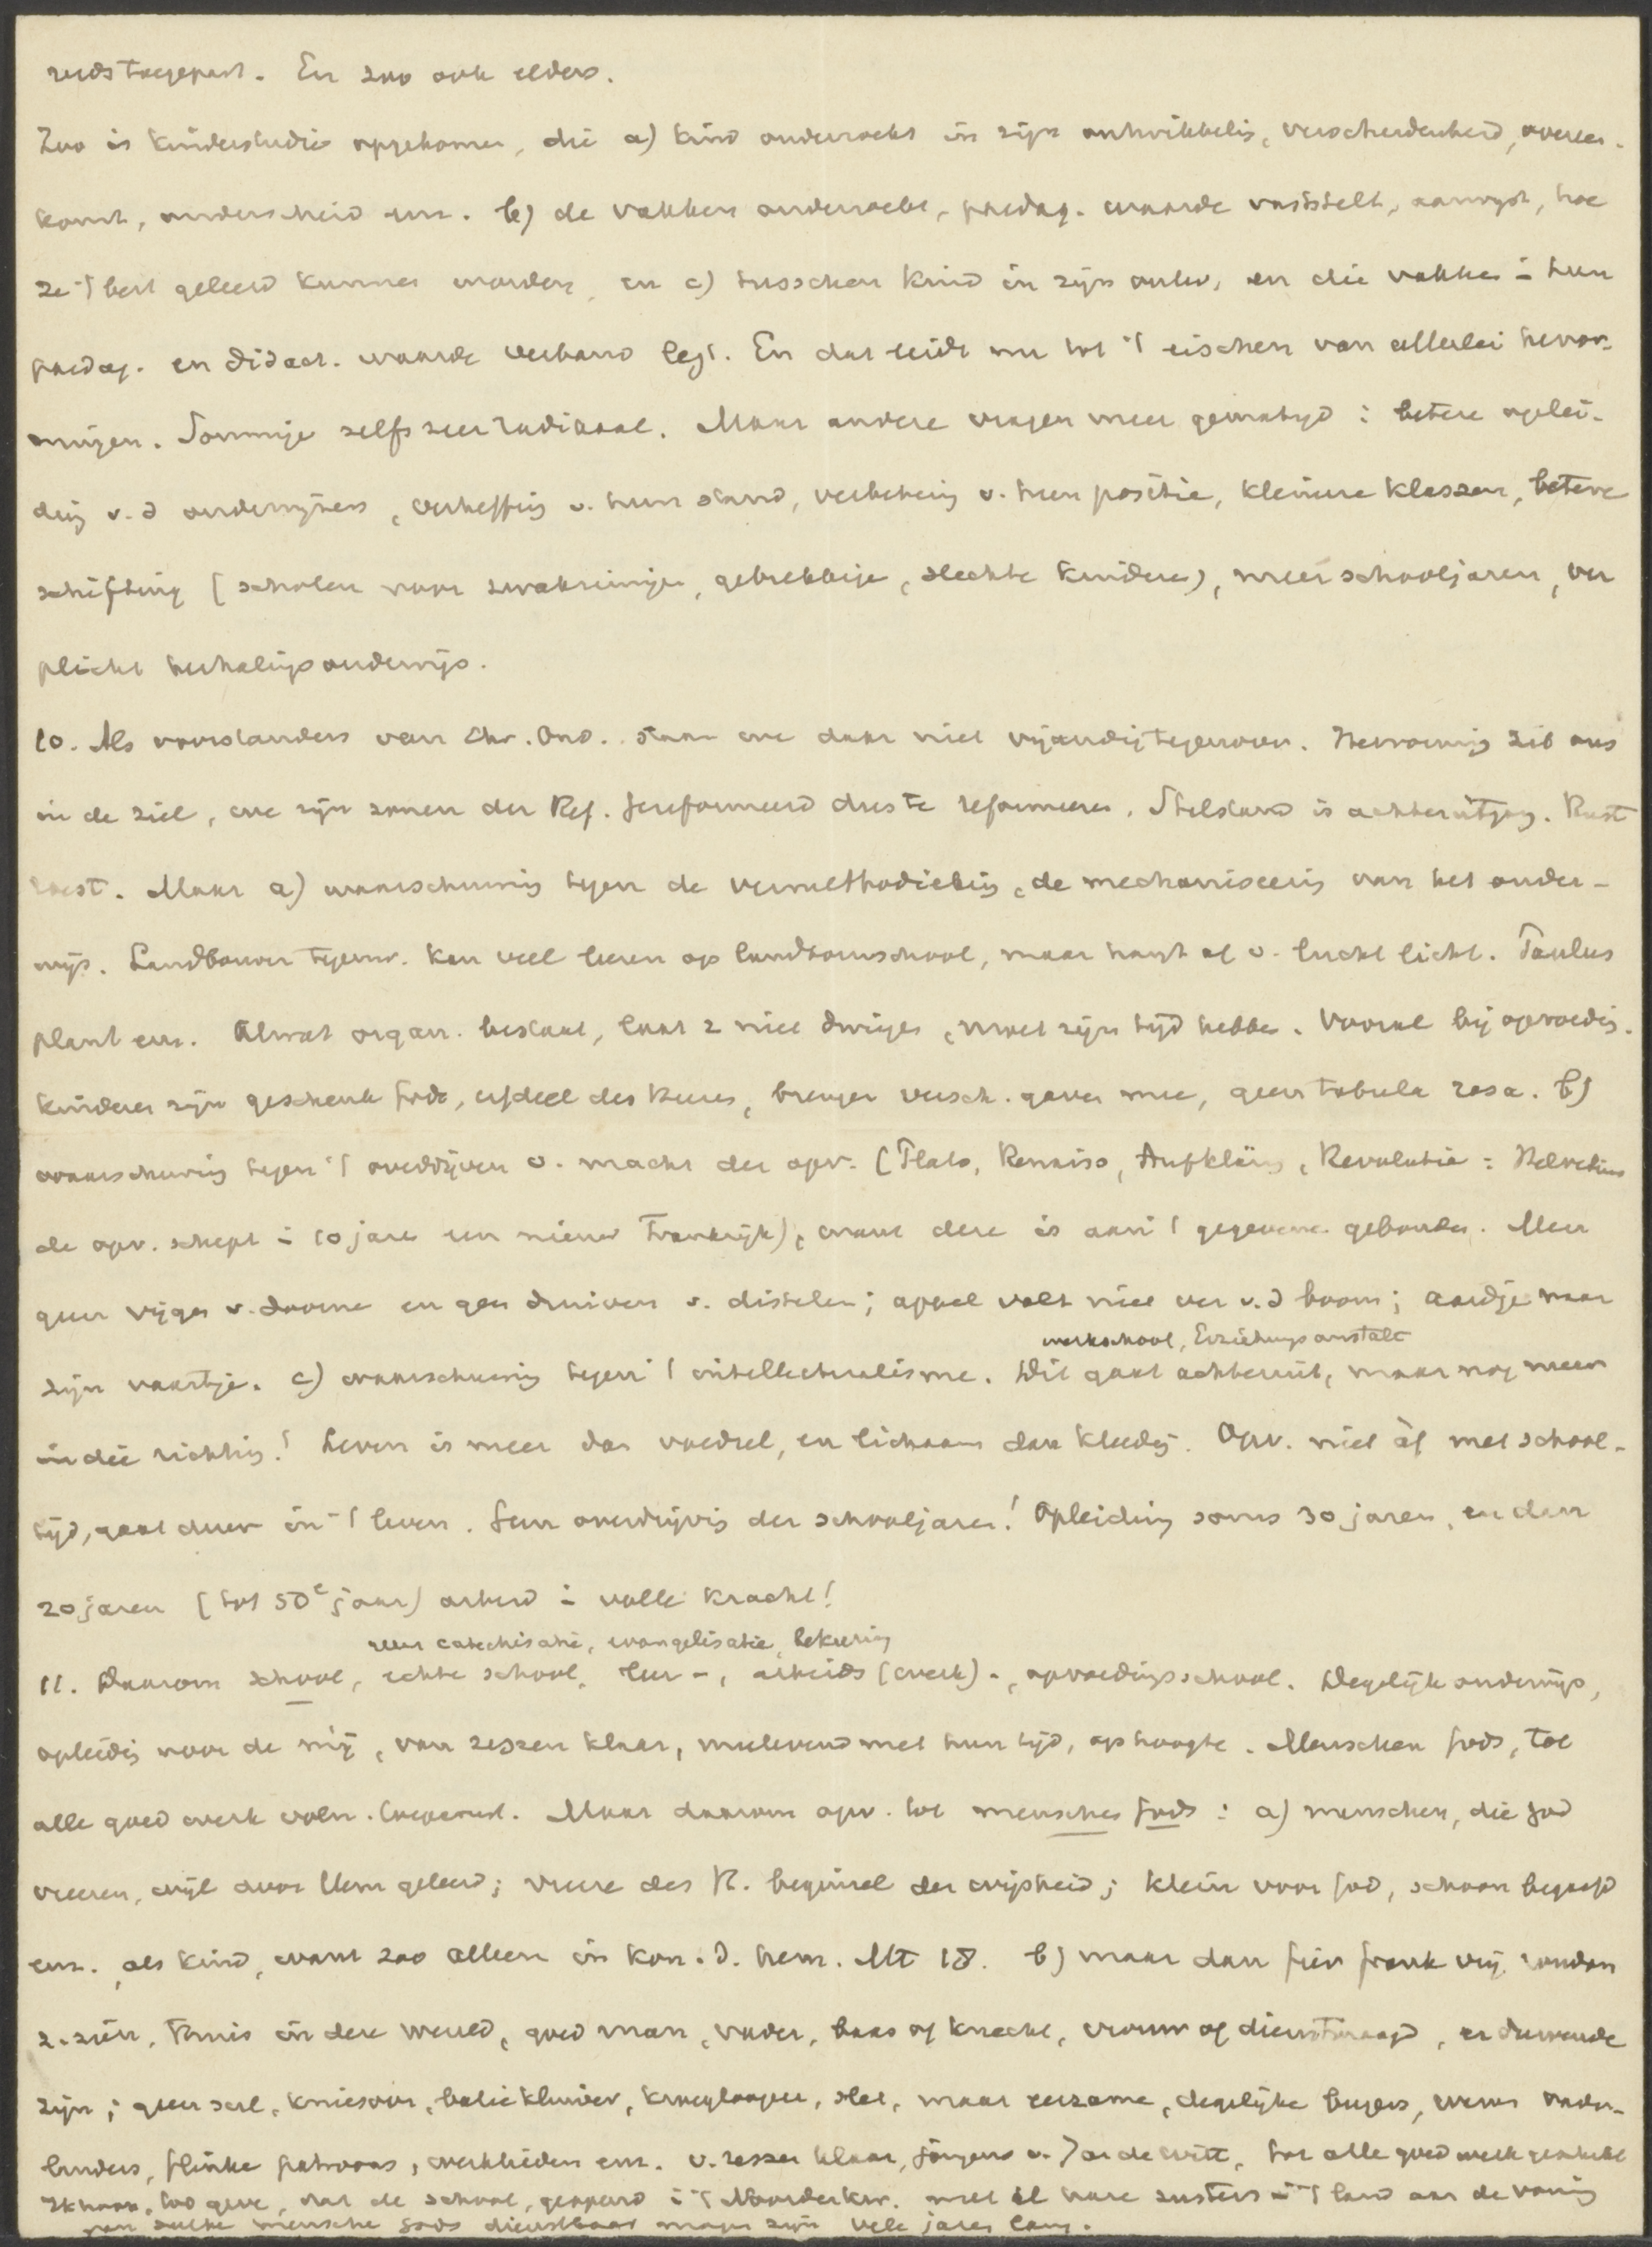 reeds toegepast. En zoo ook elders.
Zoo is kinderstudie opgekomen, die a) kind onderzoekt in zijn ontwikkelig, verscheidenheid, overeen-
komst, onderscheid enz. b) de vakken onderzoekt, paedag. waarde vaststelt, aanwijst, hoe
ze 't best geleerd kunnen worden, en c) tusschen kind in zijn ontw. en die vakken i hun
paedag. en didact. waarde verband legt. En dat leidt nu tot 't eischen van allerlei hervor-
mingen. Sommige zelfs zeer radikaal. Maar andere vragen meer gematigd: betere oplei-
ding v. d onderwijzers, verheffing v. hun stand, verbetering v. hun positie, kleinere klassen, betere
schifting (scholen voor zwakzinnige, gebrekkige, slechte kinderen), meer schooljaren, ver
plicht herhalingsonderwijs.
10. Als voorstanders van Chr. Ond. staan we daar niet vijandig tegenover. Hervorming zit ons
in de ziel, we zijn zonen der Ref. Gereformeerd dus te reformeeren. Stilstand is achteruitgang. Rust
roest. Maar a) waarschuwing tegen de vermethodieking, de mechaniseering van het onder-
wijs. Landbouwer tegenw. kan veel leeren op landbouwschool, maar hangt af v. lucht licht. Paulus
plant enz. Alwat organ. bestaat, laat z niet dwingen, moet zijn tijd hebben. Vooral bij opvoedig.
Kinderen zijn geschenk Gods, erfdeel des Heeren, brengen versch. gaven mee, geen tabula rasa. b)
waarschuwing tegen 't overdrijven v. macht der opv. (Plato, Renaiss, Aufklärg, Revolutie: Helvetius
de opv. schept i 10 jaren een nieuw Frankrijk), want deze is aan 't gegevene gebonden. Men
geen vijgen v. doorne en geen druiven v. distelen; appel valt niet ver v. d boom; aardje naar
werkschool, Erziehungsanstalt
zijn vaartje. c) waarschuwing tegen 't intellectualisme. Dit gaat achteruit, maar nog meer
in die richting! Leven is meer dan voedsel, en lichaam dan kleedij. Opv. niet àf met school-
tijd, gaat door in 't leven. Geen overdrijving der schooljaren! Opleiding soms 30 jaren, en dan
20 jaren (tot 50e jaar) arbeid i volle kracht!
geen catechisatie, evangelisatie, bekeering
11. Daarom school, echte school, leer-, arbeids (werk)-, opvoedingsschool. Degelijk onderwijs,
opleidig voor de mij, van zessen klaar, meelevend met hun tijd, op hoogte. Menschen Gods, tot
alle goed werk volm. toegerust. Maar daarom opv. tot menschen Gods: a) menschen, die God
vreezen, wijl door Hem geleerd; vreeze des H. beginsel der wijsheid; klein voor God, schoon begaafd
enz. als kind, want zoo alleen in kon. d. hem. Mt 18. b) maar dan fier frank vrij rondom
z. zien, thuis in deze wereld, goed man, vader, baas of knecht, vrouw of dienstmaagd, er
zijn; geen sul, kniesoor, baliekluiver, kroeglooper, slet, maar eerzame, degelijke burgers, vader-
landers, flinke patroons, werklieden enz. v. zessen klaar, jongens v. Jan de Witt, tot alle goed werk geschikt
God geve, dat de school, geopend i 't Noorderkw. met al hare zusters i 't land aan de vorming
van zulke menschen Gods dienstbaar moge zijn vele jaren lang.